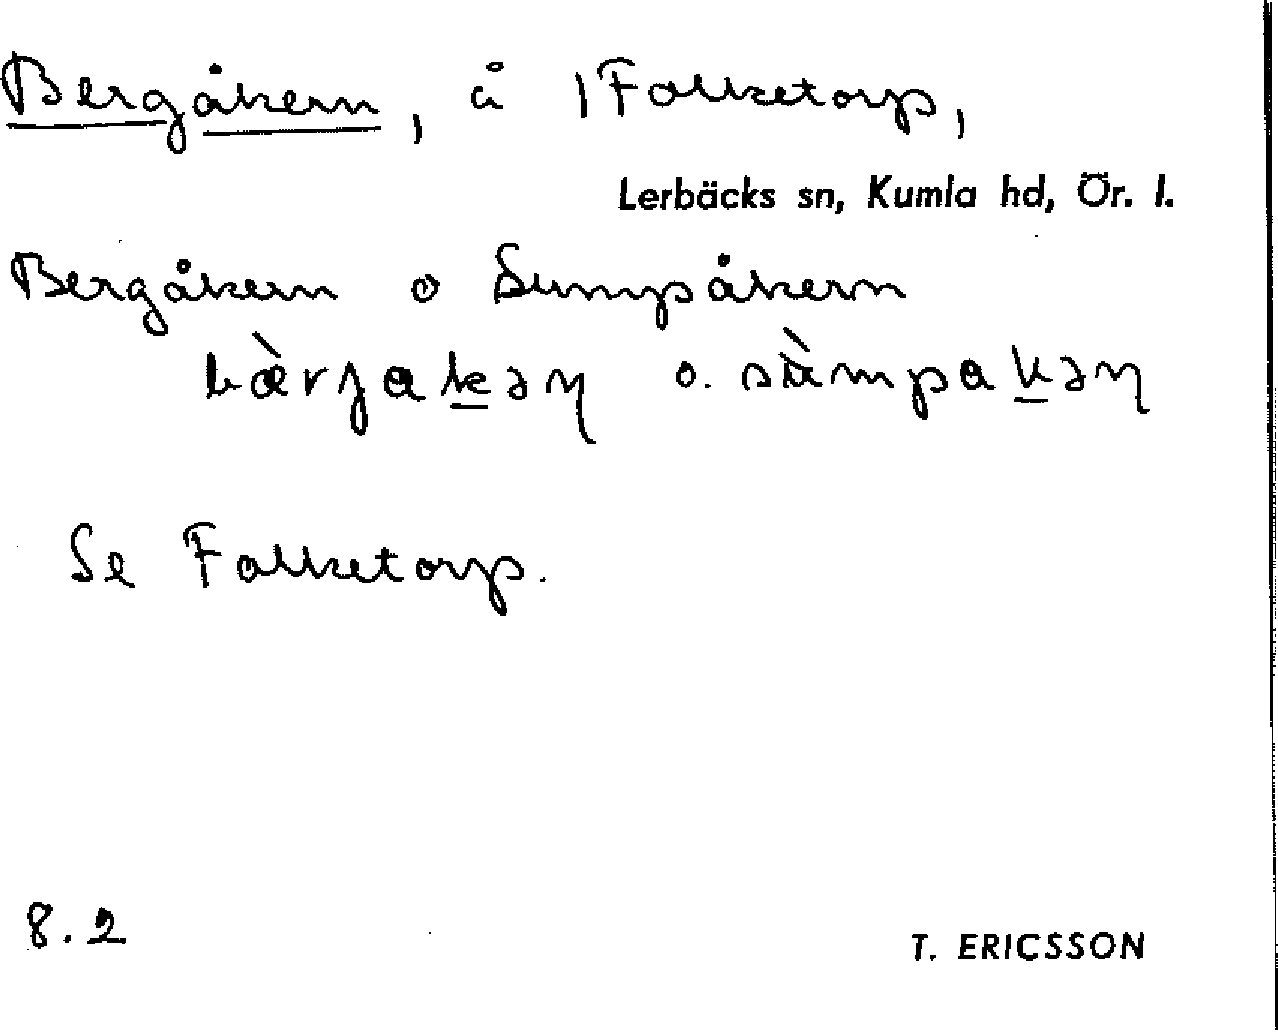 Bergåkern, å /Falketorp,
Lerbäcks sn, Kumla hd, Ör. l.
Bergåkern o Sumpåkern
bæ̀rjakəɳ o. sùmpakəɳ
Se Falketorp.
8.2
T. ERICSSON